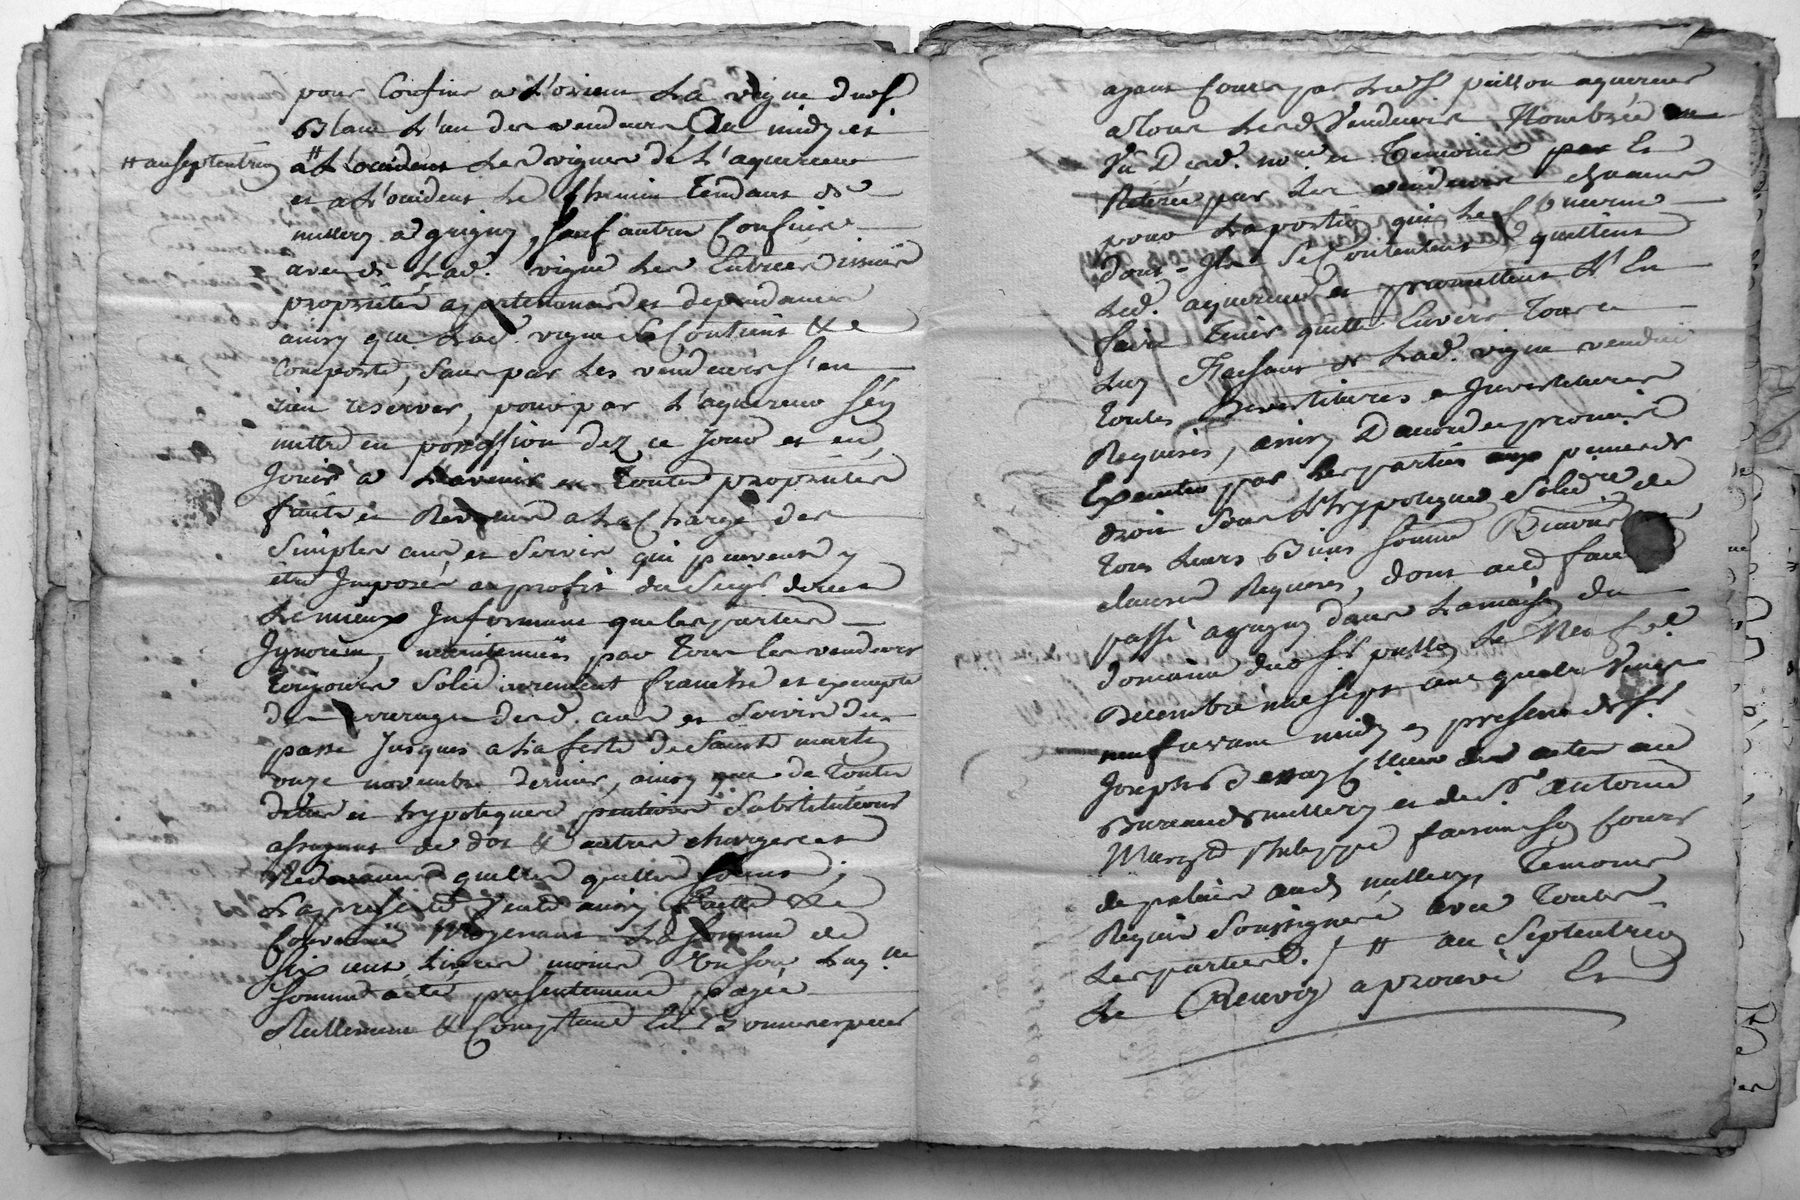 pour Confins a L'orient La vigne du sr
Blanc L'un des vendeurs Du midy et
# au septentrion
a # L'occident Les vignes de L'aquereur
et a L'occident Le Chemin Tendant de
millery a grigny, sauf autres Confins
avec Lad. vigne Les Entrées issues
proprietés appartenances et dependances
ainsy que Lad. vigne se Contient & se
Comporte, sans par Les vendeurs s'en
rien reserver, pour par L'aquereur s'en
mettre en possession dez ce Jour et en
Jouir a L'avenir en Toutes proprietés
fruits et Revenus a La Charge des
simples cens et servis qui peuvent y
être Imposés au profit du seigr. direct
Le mieux Informant que les parties
Ignorent, maintenüe par Tous les vendeurs
Toujours solidairement franche et exempte
des arrerages desd. cens et servis du
passé Jusques a La feste de saint martin
onze novembre dernier, ainsy que de Toutes
dettes et hypoteques pentions substitutions
assignats de dot & autres charges et
Redevances quelles quelles soient;
La presente vente ainsy faitte &
Convenüe Moyenant La somme de
six cent Livres moins un sou Laq.lle
somme a été presentement payée
Réellement & Comptant En Bonnes especes
ayant Cours par Led. sr pitton aquereur
a Tous Lesd. Vendeurs Nombrée en
Vu Desd. no.re et Temoins et
Retirée par Les vendeurs chacun
pour La portion qui Le Concerne
Dont Ils se Contentent & quittent
Led. aquereur et promettent L'En
faire Tenir quitte Envers Tous
Luy Faisant de Lad. vigne vendüe
Toutes Devestitures et Investitures
Requises, ainsy D'acord et promis
Executer par les parties aux peines de
droit sous L'hypoteque solid.re de
Tous Leurs Biens
clauses Requises, dont acte fait
passé a grigny dans La maison du
domaine dud. sr pitton Le Neuf
Decembre mil sept cent quatre Vingt
neuf avant midy en presence de sr
Joseph
Bureau de millery et de sr antoine
Marie philippe faisant son Cours
de palais aud. millery Temoins
Requis soussignés avec Toutes
Les parties. / # au septentrion
Le Renvoy aprouvé Et